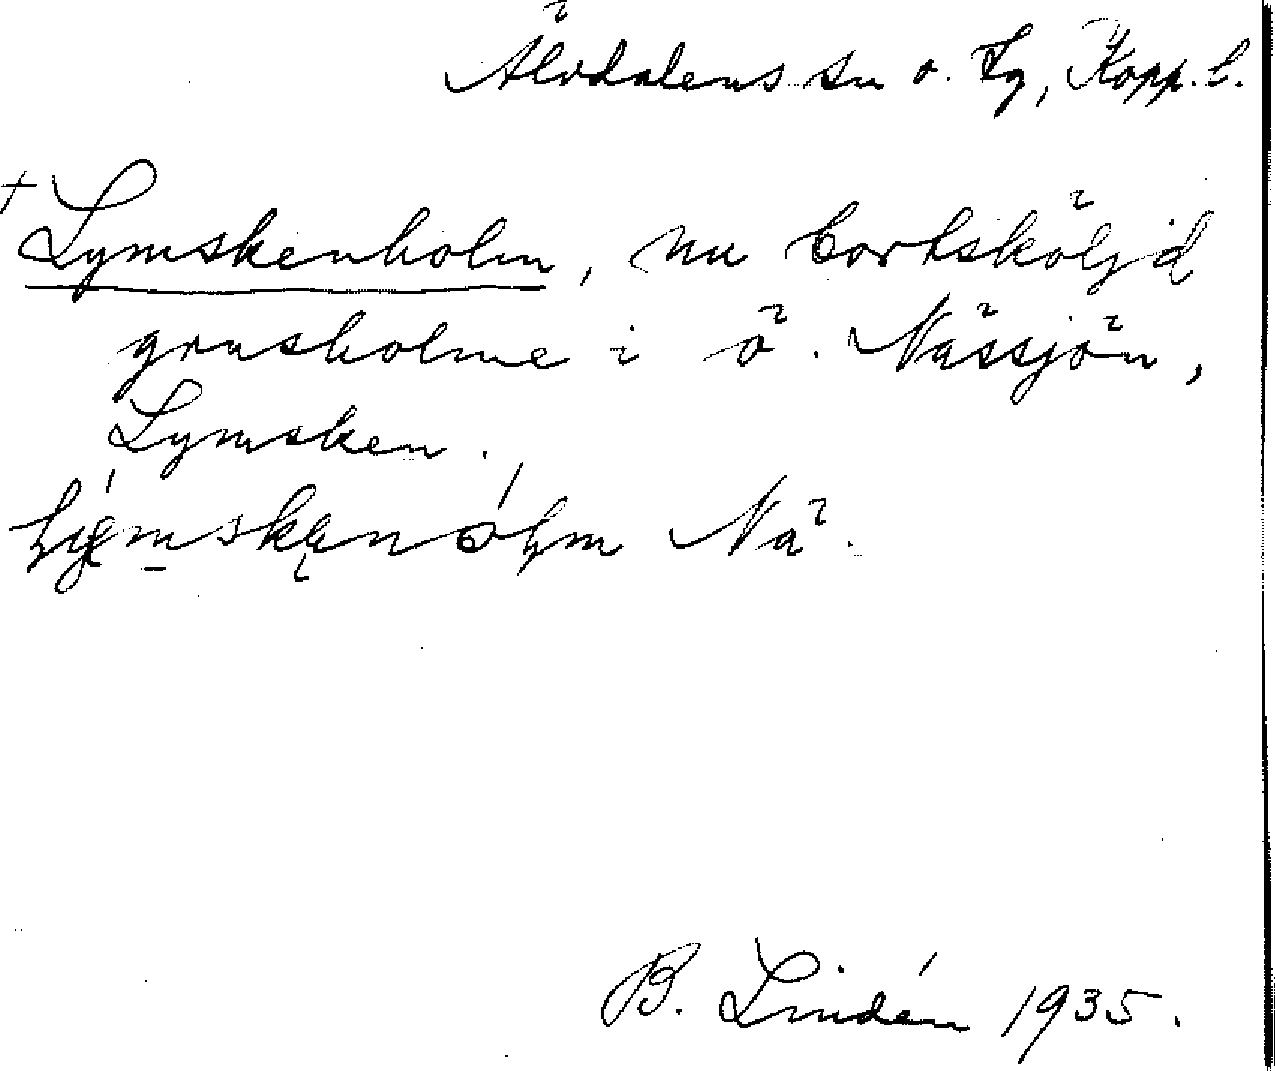 Älvdalens sn o. tg, Kopp. l.
+ Lymskenholm, nu bortsköljd
grusholme i ö. Nässjön,
Lymsken.
Nä.
B. Lindén 1935.